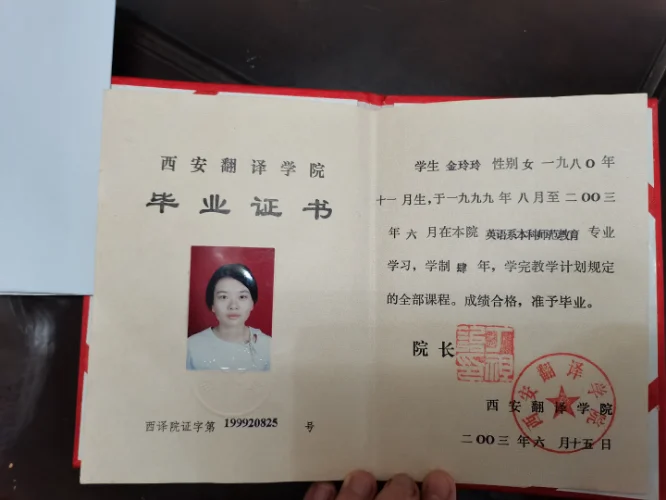 西安翻译学院
毕业证书
西译院证字第 199920825 号
学生 金玲玲 性别 女 一九八〇年
十一月生,于一九九九年八月至二〇〇三
年六月在本院 英语系本科师范教育 专业
学习,学制 肆 年,学完教学计划规定
的全部课程。成绩合格,准予毕业。
院长
西安翻译学院
西安翻译学院
二〇〇三年六月十五日